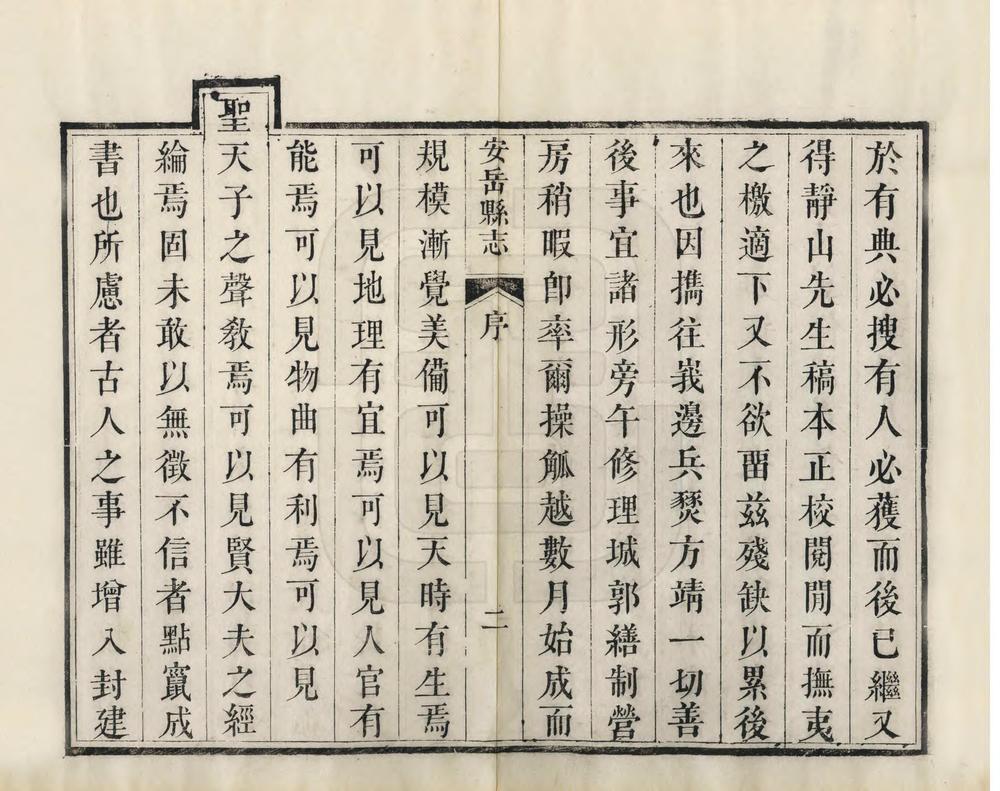 於有典必搜有人必獲而後已繼又
得靜山先生稿本正校閱閒而撫夷
之檄適下又不欲畱兹殘缺以累後
來也因擕往峩邊兵燹方靖一切善
後事宜諸形旁午修理城郭繕制營
房稍暇卽率爾操觚越數月始成而
安岳縣志 序 二
規模漸覺美備可以見天時有生焉
可以見地理有宜焉可以見人官有
能焉可以見物曲有利焉可以見
聖天子之聲敎焉可以見賢大夫之經
綸焉固未敢以無徵不信者點竄成
書也所慮者古人之事雖增入封建